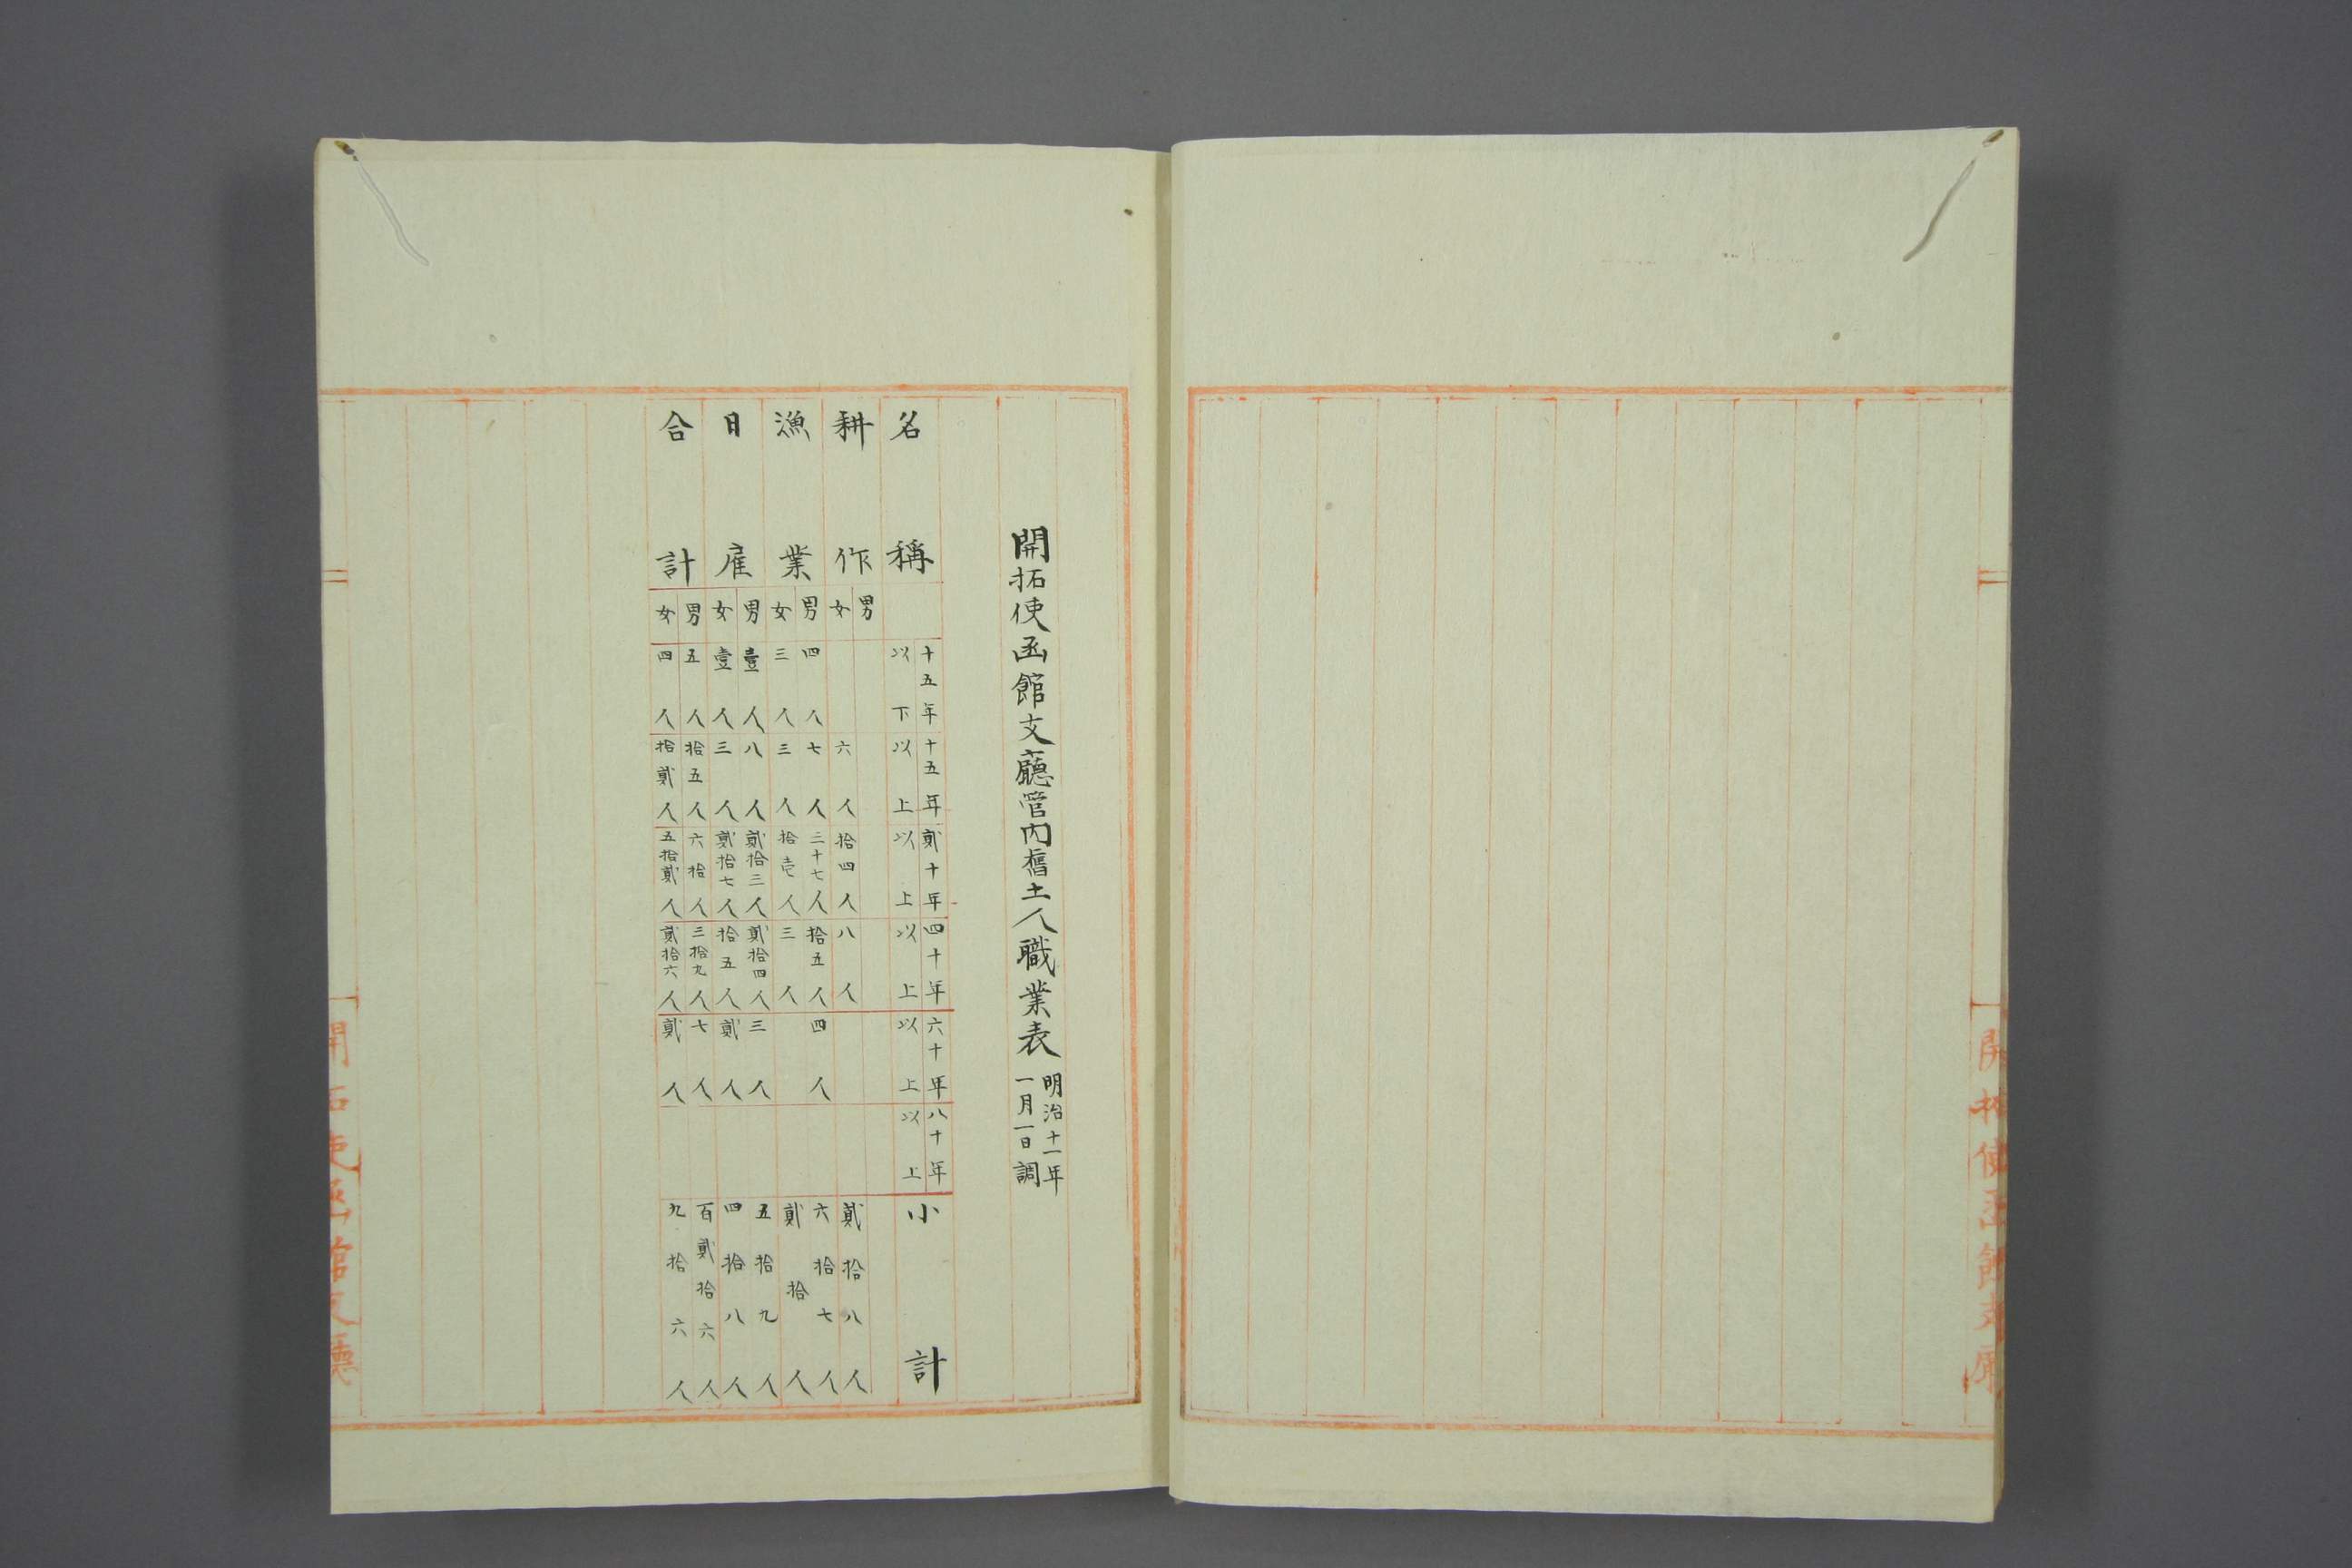 開拓使函館支廳
開拓使函館支廳管内舊土人職業表
明治十一年
一月一日調
名稱 十五年以下 十五年以上 貳十年以上 四十年以上 六十年以上 八十年以上 小計
耕作 男
女 六人 拾四人 八人 貳拾八人
漁業 男 四人 七人 三十七人 拾五人 四人 六拾七人
女 三人 三人 拾壱人 三人 貳拾人
日雇 男 壹人 八人 貳拾三人 貳拾四人 三人 五拾九人
女 壹人 三人 貳拾七人 拾五人 貳人 四拾八人
合計 男 五人 拾五人 六拾人 三拾九人 七人 百貳拾六人
女 四人 拾貳人 五拾貳人 貳拾六人 貳人 九拾六人
開拓使函館支廳